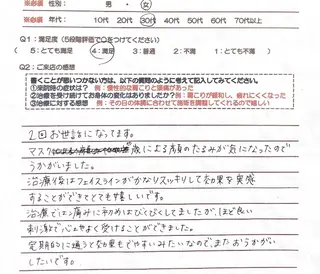 ※必須 性別: 男・女
※必須 年齢: 10代 20代 30代 40代 50代 60代 70代以上
Q1:満足度(5段階評価で○をつけてください)
( 5:とても満足 4:満足 3:普通 2:不満 1:とても不満 )
Q2:ご来店の感想
書くことが思いつかない方は、以下の質問のように考えて記入してみてください。
①来院時の症状は? 例:慢性的な肩こりと頭痛があった
②治療を受けてお身体の変化はありましたか? 例:肩こりが緩和し、疲れにくくなった
③治療に対する感想 例:その日の体調に合わせて施術を調整してくれるので嬉しい
2回お世話になってます。
マスク 歳による顔のたるみが気になったので
うかがいました。
治療後はフェイスラインがかなりスッキリして効果を実感
することができてとても嬉しいです。
治療では痛みに初めはびくびくしてましたが、ほど良い
刺激で心地よく受けることができました。
定期的に通うと効果もでやすいみたいなのでまたおうかがい
したいです。